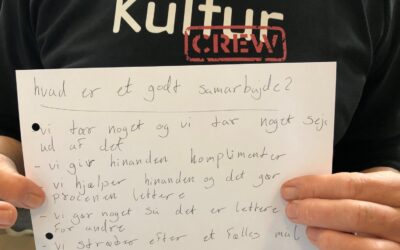 Kultur
CREW
hvad er et godt samarbejde?
- vi tør noget og vi tar noget sejs
ud af det
- vi gir hinanden komplimenter
- vi hjælper hinanden og det gør
prosessen lettere
- vi gør noget så det er lettere
for andre
- vi stræber efter et fælles mål